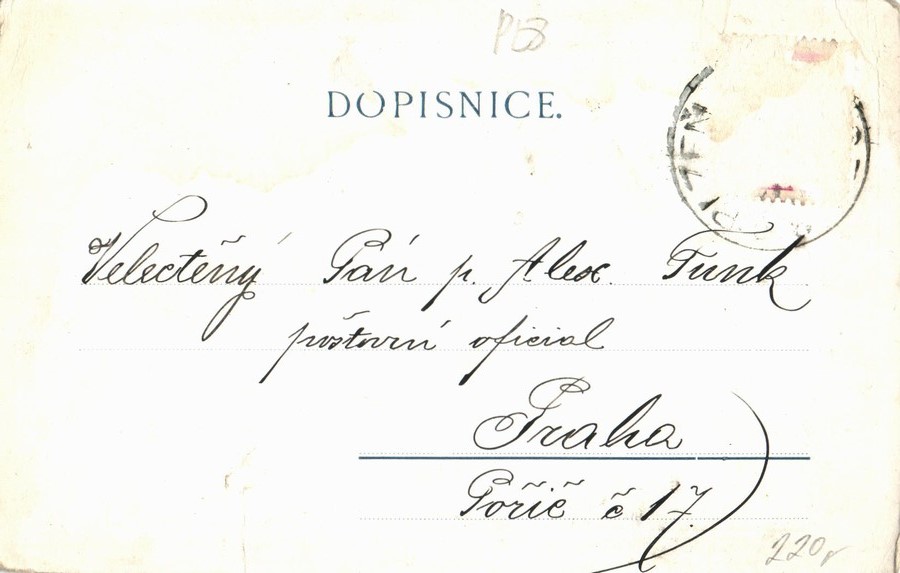 DOPISNICE.
PLZEŇ
Velectěný Pán p. Alex. Funk
poštovní oficial
Praha
Pořič č 17.
220,-